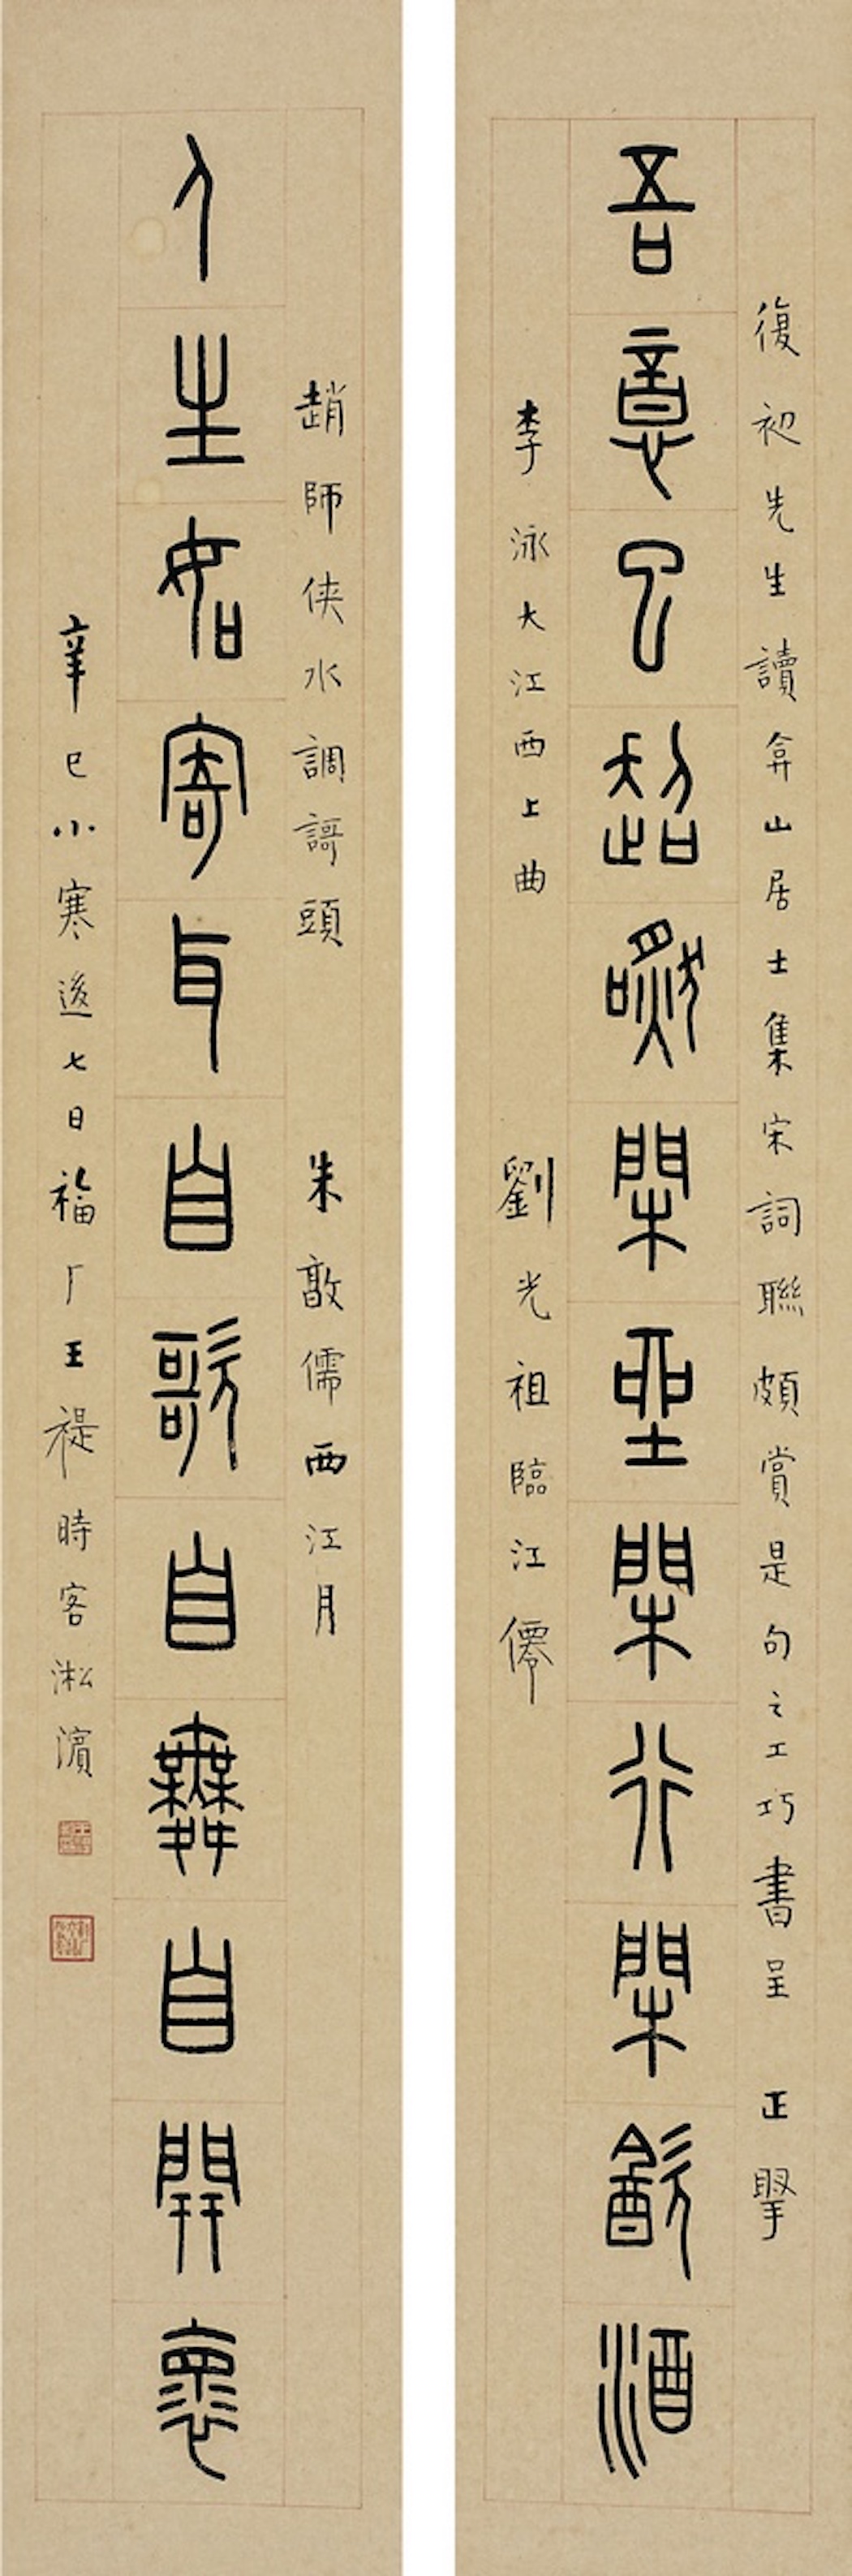 復初先生讀弇山居士集宋詞聯頗賞是句之工巧書呈 正掔
吾意已超嘫閑坐閑行閑飲酒
李泳大江西上曲 劉光祖臨江僊
趙師俠水調謌頭 朱敦儒西江月
人生如寄耳自歌自舞自開懷
辛巳小寒後七日福厂王禔時客淞濱